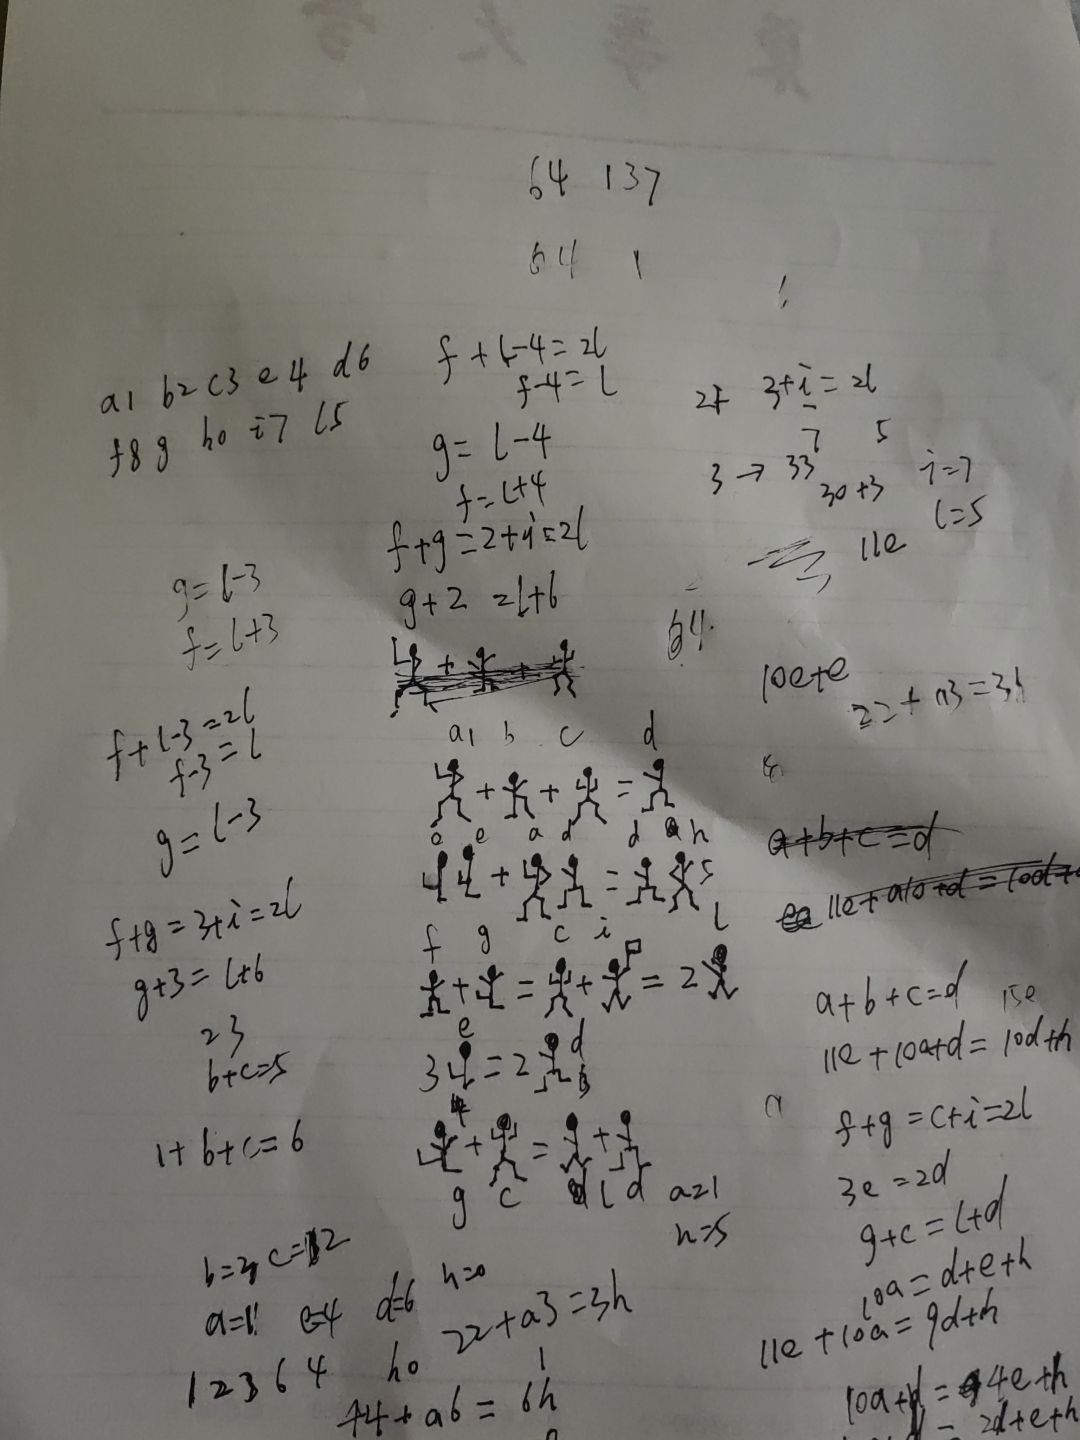 64 137
64 1
a1 b2 c3 e4 d6
f8 g h0 i7 l5
f + l-4 = 2l
f-4 = l
g = l-4
f = l+4
f+g = 2+i = 2l
g+2 = l+6
3+i = 2l
7 5
3 → 33
30+3
i=7
l=5
11e
g = l-3
f = l+3
64
10e+e
22 + a3 = 3h
f + l-3 = 2l
f-3 = l
g = l-3
a1 b c d
+ + =
e e a d d a h
+ =
f g c i l
+ = + = 2
e d
3 = 2
+ = +
g c l d
a=1
h=5
f+g = 3+i = 2l
g+3 = l+6
23
b+c=5
1+b+c=6
a+b+c=d
a+b+c=d 15e
11e+10a+d = 10d+h
f+g = c+i = 2l
3e = 2d
g+c = l+d
10a = d+e+h
11e+10a = 9d+h
10a+d = 4e+h
= 2d+e+h
h=0
a=1 e=4 d=6
22+a3=3h
1 2 3 6 4 h0
44+a6 = 6h